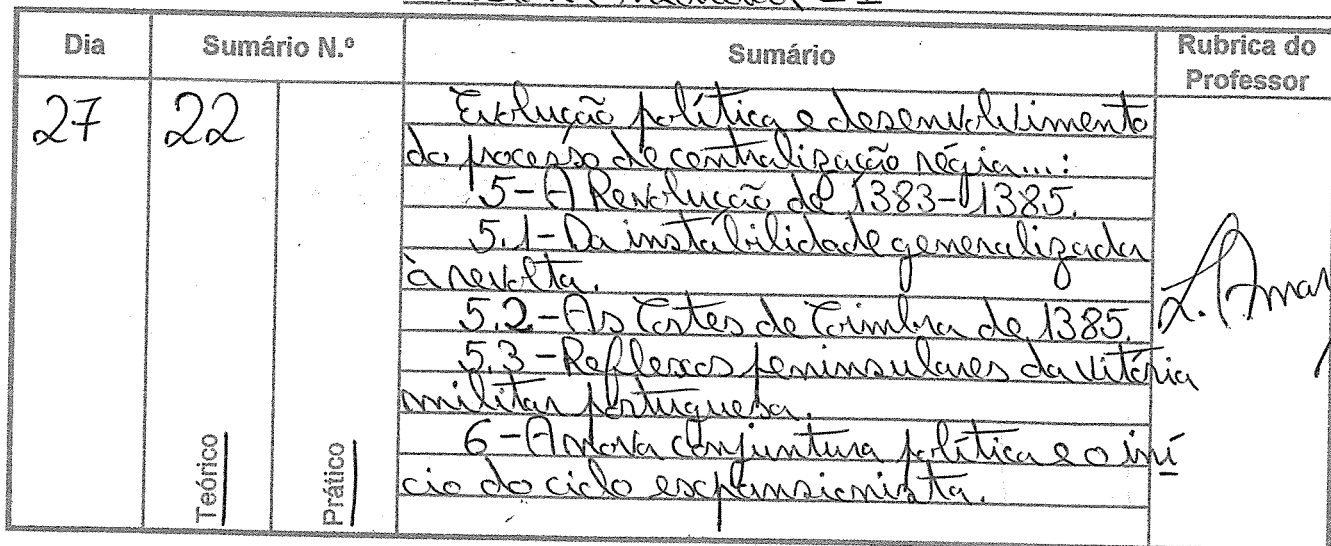 Dia
Sumário N.º
Sumário
Rubrica do
Professor
27
22
Evolução política e desenvolvimento
do processo de centralização régia...:
5-A Revolução de 1383-1385.
5.1-Da instabilidade generalizada
à revolta.
5.2-As Cortes de Coimbra de 1385.
5.3-Reflexos peninsulares da vitória
militar portuguesa.
6-A nova conjuntura política e o iní
cio do ciclo expansionista.
Teórico
Prático